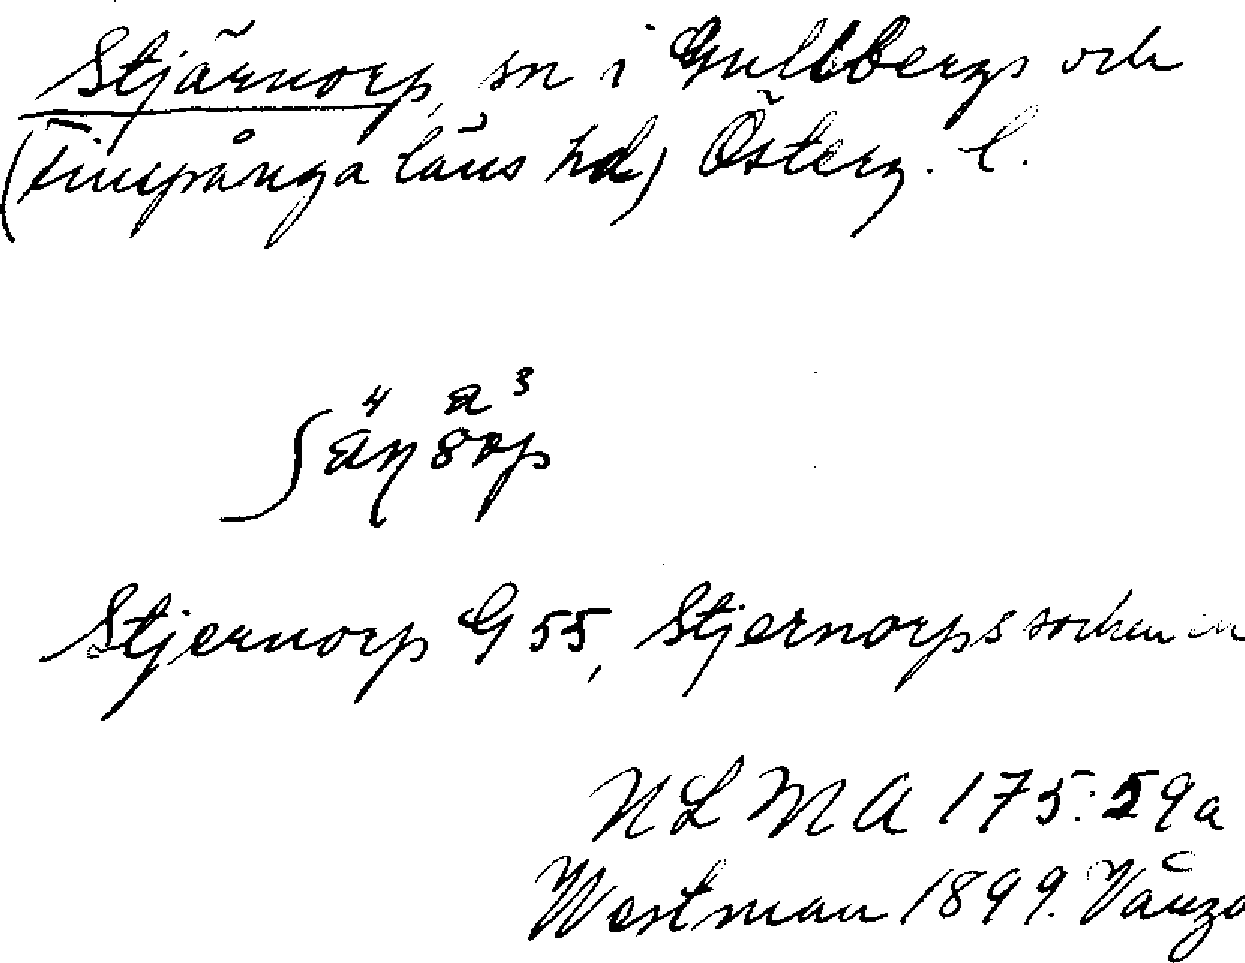 Stjärnorp, sn i Gullbergs och
(Finspånga läns hd) Österg. l.
Stjernorp G 55, Stjernorps socken
NLMA 175:59a
Westman 1899. Vånga